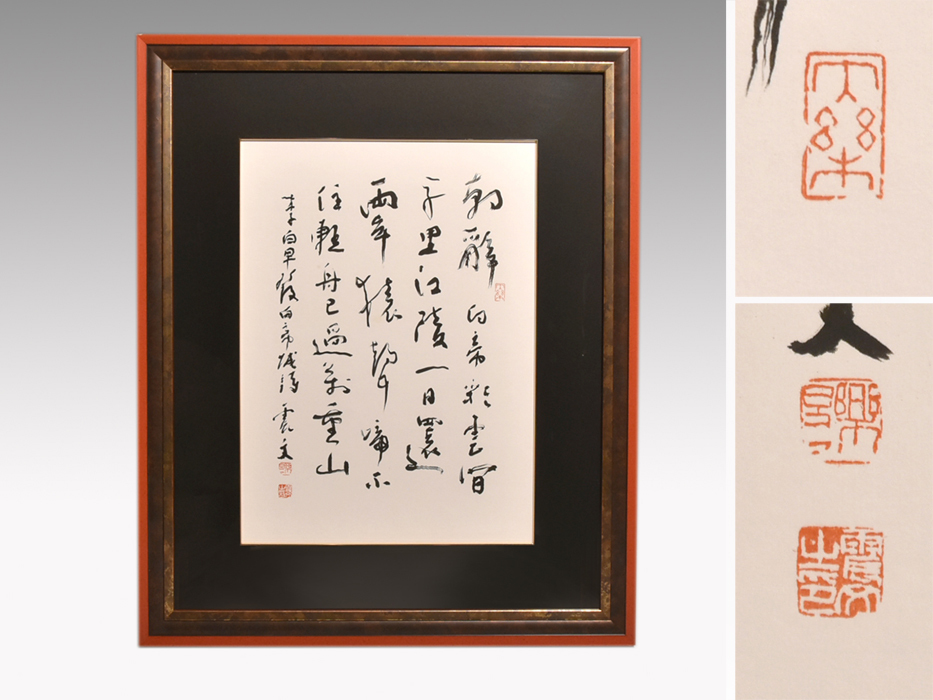 朝辭白帝彩雲間
千里江陵一日還
兩岸猿聲啼不
住輕舟已過萬重山
李白早發白帝城詩 文